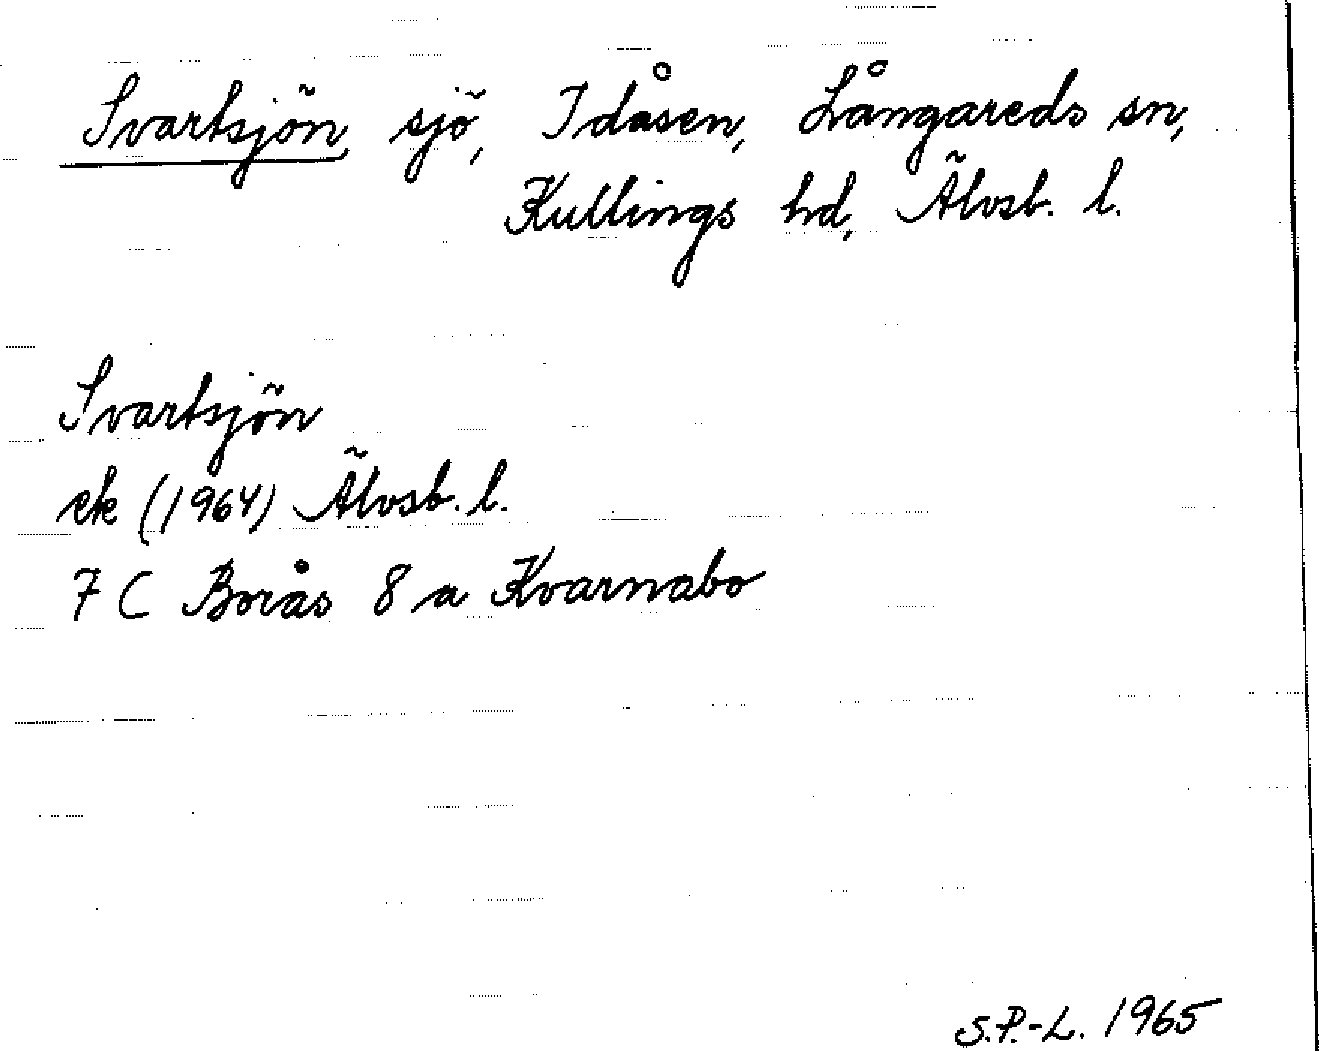 Svartsjön, sjö, Idåsen, Långareds sn,
Kullings hd, Älvsb. l.
Svartsjön
ek (1964) Älvsb. l.
7 C Borås 8 a Kvarnabo
S.P.-L. 1965